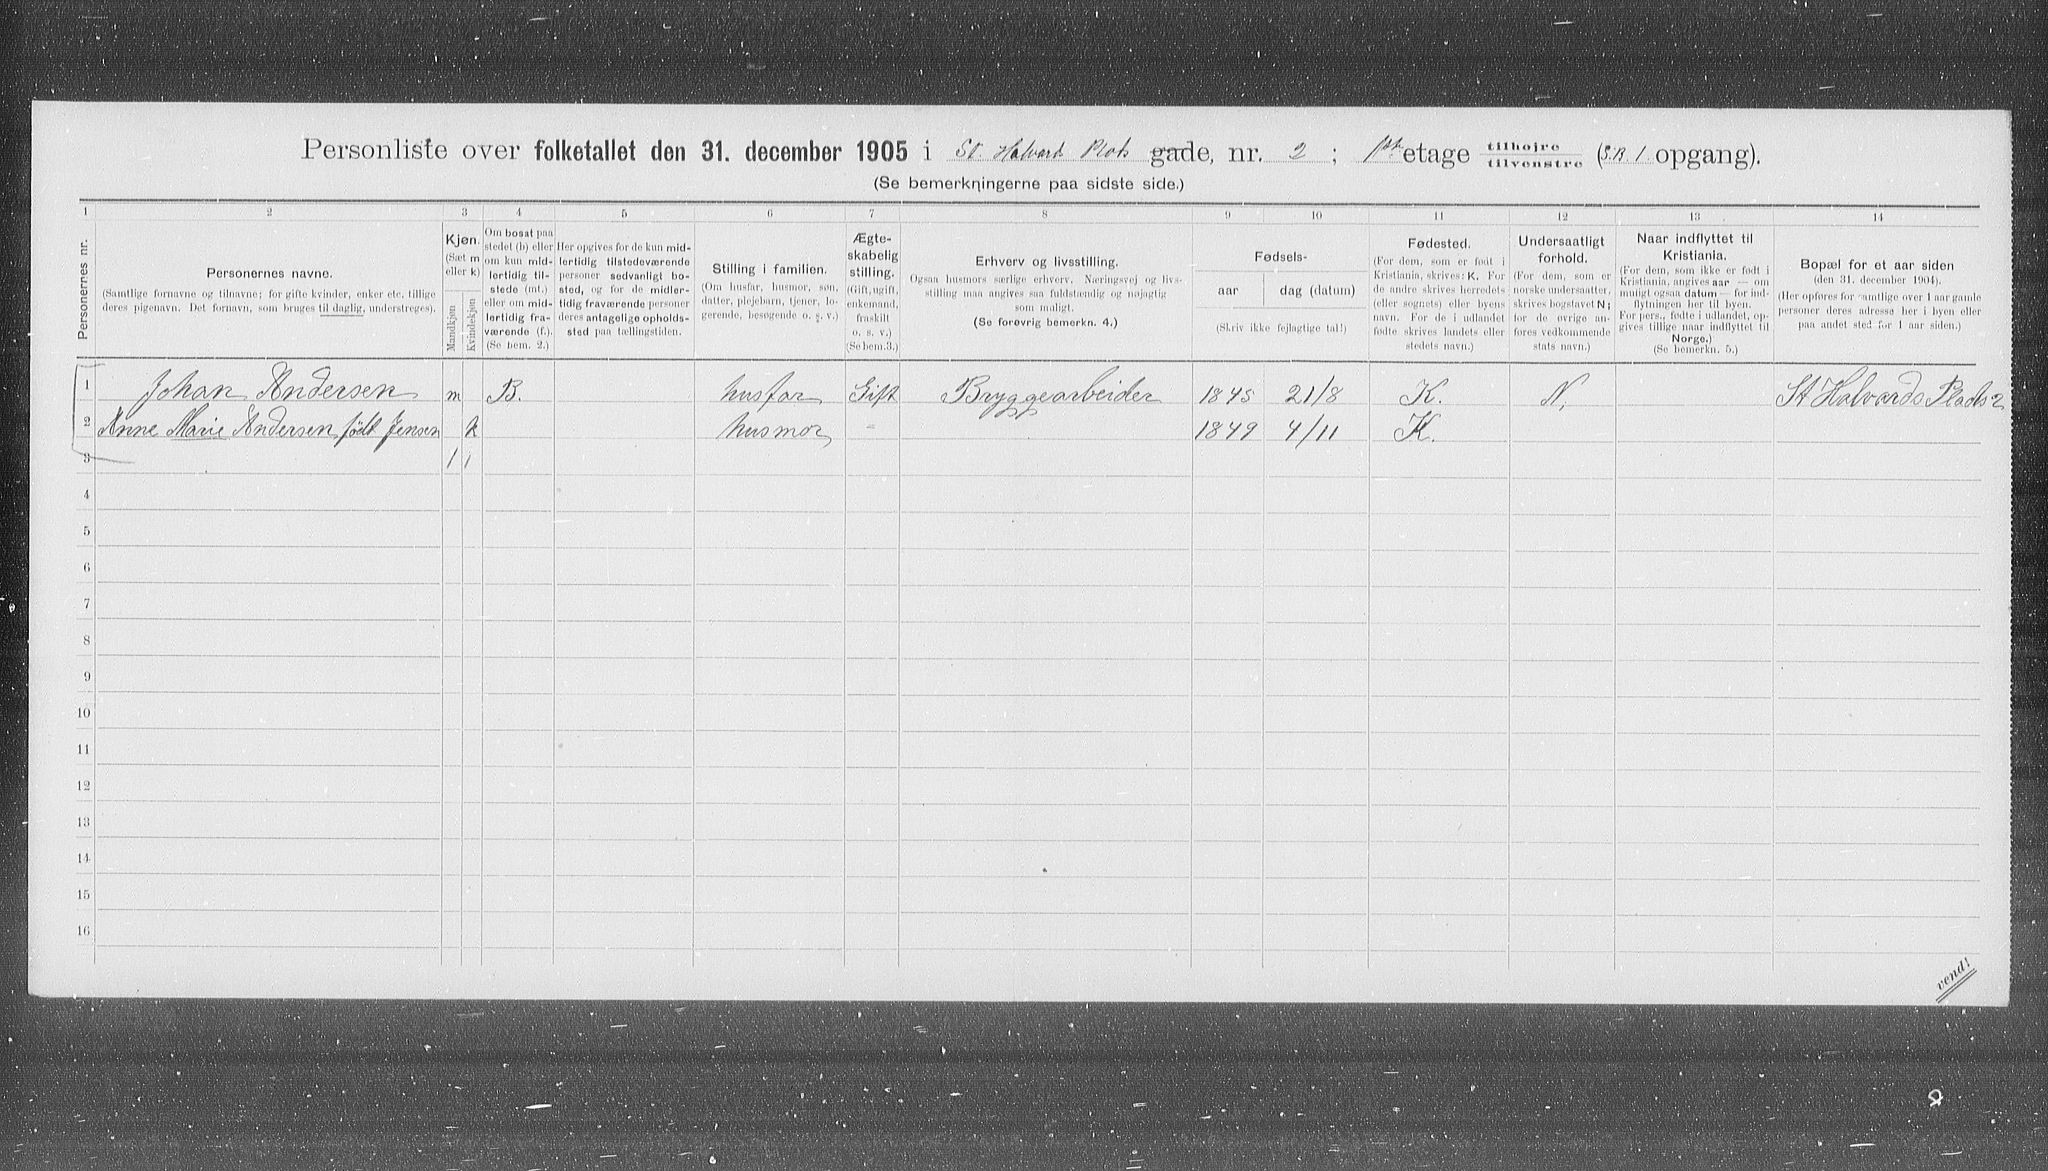 Personliste over folketallet den 31. december 1905 i St. Halvard Plads gade, nr. 2 ; 1ste etage tilhøjre tilvenstre (S.B. 1 opgang).
(Se bemerkningerne paa sidste side.)
1 2 3 4 5 6 7 8 9 10 11 12 13 14
Personernes nr.
Personernes navne.
(Samtlige fornavne og tilnavne; for gifte kvinder, enker etc. tillige
deres pigenavn. Det fornavn, som bruges til daglig, understreges).
Kjøn.
(Sæt m
eller k)
Mandkjøn
Kvindekjøn
Om bosat paa
stedet (b) eller
om kun mid-
lertidig til-
stede (mt.)
eller om mid-
lertidig fra-
værende (f.).
(Se bem. 2.)
Her opgives for de kun mid-
lertidig tilstedeværende
personer sedvanligt bo-
sted, og for de midler-
tidig fraværende personer
deres antagelige opholds-
sted paa tællingstiden.
Stilling i familien.
(Om husfar, husmor, søn,
datter, plejebarn, tjener, lo-
gerende, besøgende o. s. v.)
Ægte-
skabelig
stilling.
(Gift, ugift,
enkemand,
fraskilt
o. s. v.)
(Se bem.3.)
Erhverv og livsstilling.
Ogsaa husmors særlige erhverv. Næringsvej og livs-
stilling maa angives saa fuldstændig og nøjagtig
som muligt.
(Se forøvrig bemerkn. 4.)
Fødsels-
aar
dag (datum)
(Skriv ikke fejlagtige tal!)
Fødested.
(For dem, som er født i
Kristiania, skrives: K. For
de andre skrives herredets
(eller sognets) eller byens
navn. For de i udlandet
fødte skrives landets eller
stedets navn.)
Undersaatligt
forhold.
(For dem, som er
norske undersaatter,
skrives bogstavet N;
for de øvrige an-
føres vedkommende
stats navn.)
Naar indflyttet til
Kristiania.
(For dem, som ikke er født i
Kristiania, angives aar — om
muligt ogsaa datum — for ind-
flytningen her til byen.
For pers., fødte i udlandet, op-
gives tillige naar indflyttet til
Norge.)
(Se bemerkn. 5.)
Bopæl for et aar siden
(den 31. december 1904).
(Her opføres for samtlige over 1 aar gamle
personer deres adresse her i byen eller
paa andet sted for 1 aar siden.)
1 Johan Andersen m B. husfar Gift Bryggearbeider 1845 21/8 K. N. St Halvards Plads 2
2 Anne Marie Andersen født Jensen k husmor " 1849 4/11 K.
3 1 1
4
5
6
7
8
9
10
11
12
13
14
15
16
vend!
8